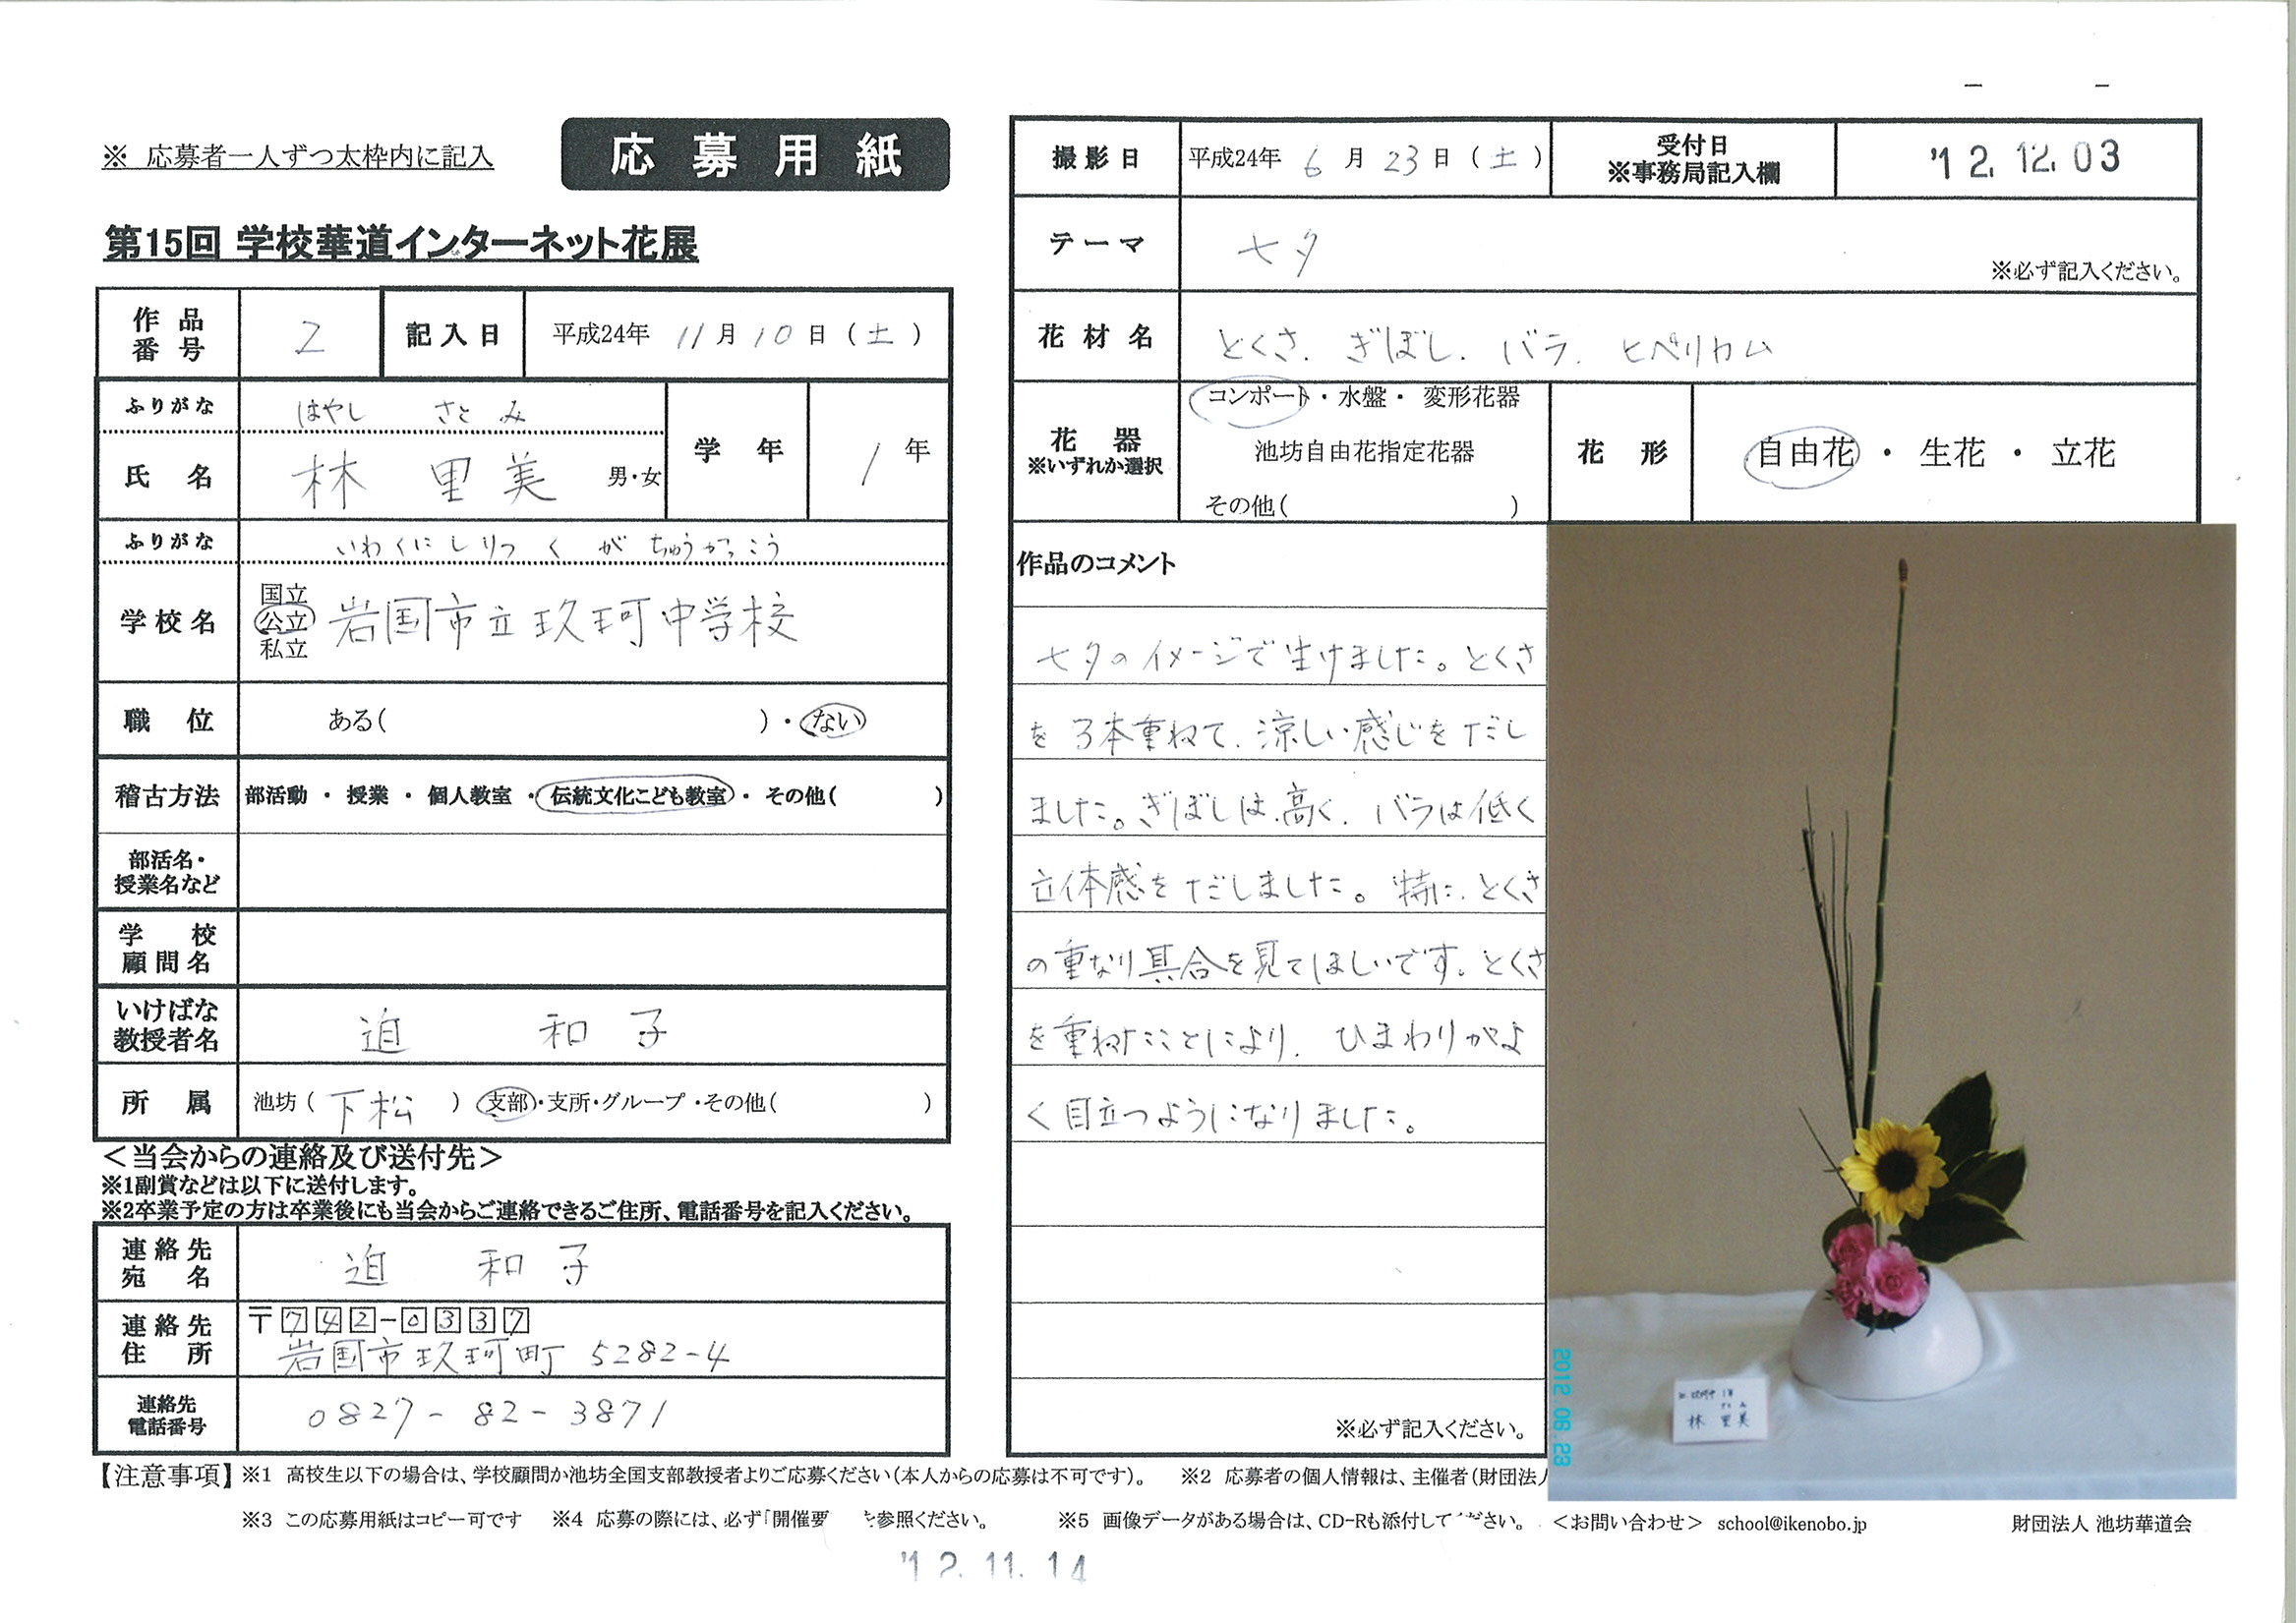 ※ 応募者一人ずつ太枠内に記入
応募用紙
第15回 学校華道インターネット花展
作品番号 2 記入日 平成24年 11月10日(土)
ふりがな はやし さとみ
氏名 林 里美 男・女 学年 1年
ふりがな いわくにしりつ くが ちゅうがっこう
学校名 国立 公立 私立 岩国市立玖珂中学校
職位 ある( )・ない
稽古方法 部活動 ・ 授業 ・ 個人教室 ・ 伝統文化こども教室 ・ その他( )
部活名・授業名など
学校顧問名
いけばな教授者名 迫 和子
所属 池坊(下松) 支部・支所・グループ・その他( )
＜当会からの連絡及び送付先＞
※1副賞などは以下に送付します。
※2卒業予定の方は卒業後にも当会からご連絡できるご住所、電話番号を記入ください。
連絡先宛名 迫 和子
連絡先住所 〒742-0337
岩国市玖珂町 5282-4
連絡先電話番号 0827-82-3871
撮影日 平成24年 6月23日(土) 受付日 ※事務局記入欄 '12.12.03
テーマ 七夕 ※必ず記入ください。
花材名 とくさ. ぎぼし. バラ. ヒペリカム
花器 ※いずれか選択 コンポート・水盤・ 変形花器
池坊自由花指定花器
その他( )
花形 自由花 ・ 生花 ・ 立花
作品のコメント
七夕のイメージで生けました。とくさ
を3本重ねて、涼しい感じをだし
ました。ぎぼしは高く、バラは低く
立体感をだしました。特に、とくさ
の重なり具合を見てほしいです。とくさ
を重ねたことにより、ひまわりがよ
く目立つようになりました。
※必ず記入ください。
林 里美
2012 06 23
【注意事項】 ※1 高校生以下の場合は、学校顧問か池坊全国支部教授者よりご応募ください(本人からの応募は不可です)。 ※2 応募者の個人情報は、主催者(財団法人
※3 この応募用紙はコピー可です ※4 応募の際には、必ず「開催要 を参照ください。 ※5 画像データがある場合は、CD-Rも添付してください。 ＜お問い合わせ＞ school@ikenobo.jp 財団法人 池坊華道会
'12.11.14